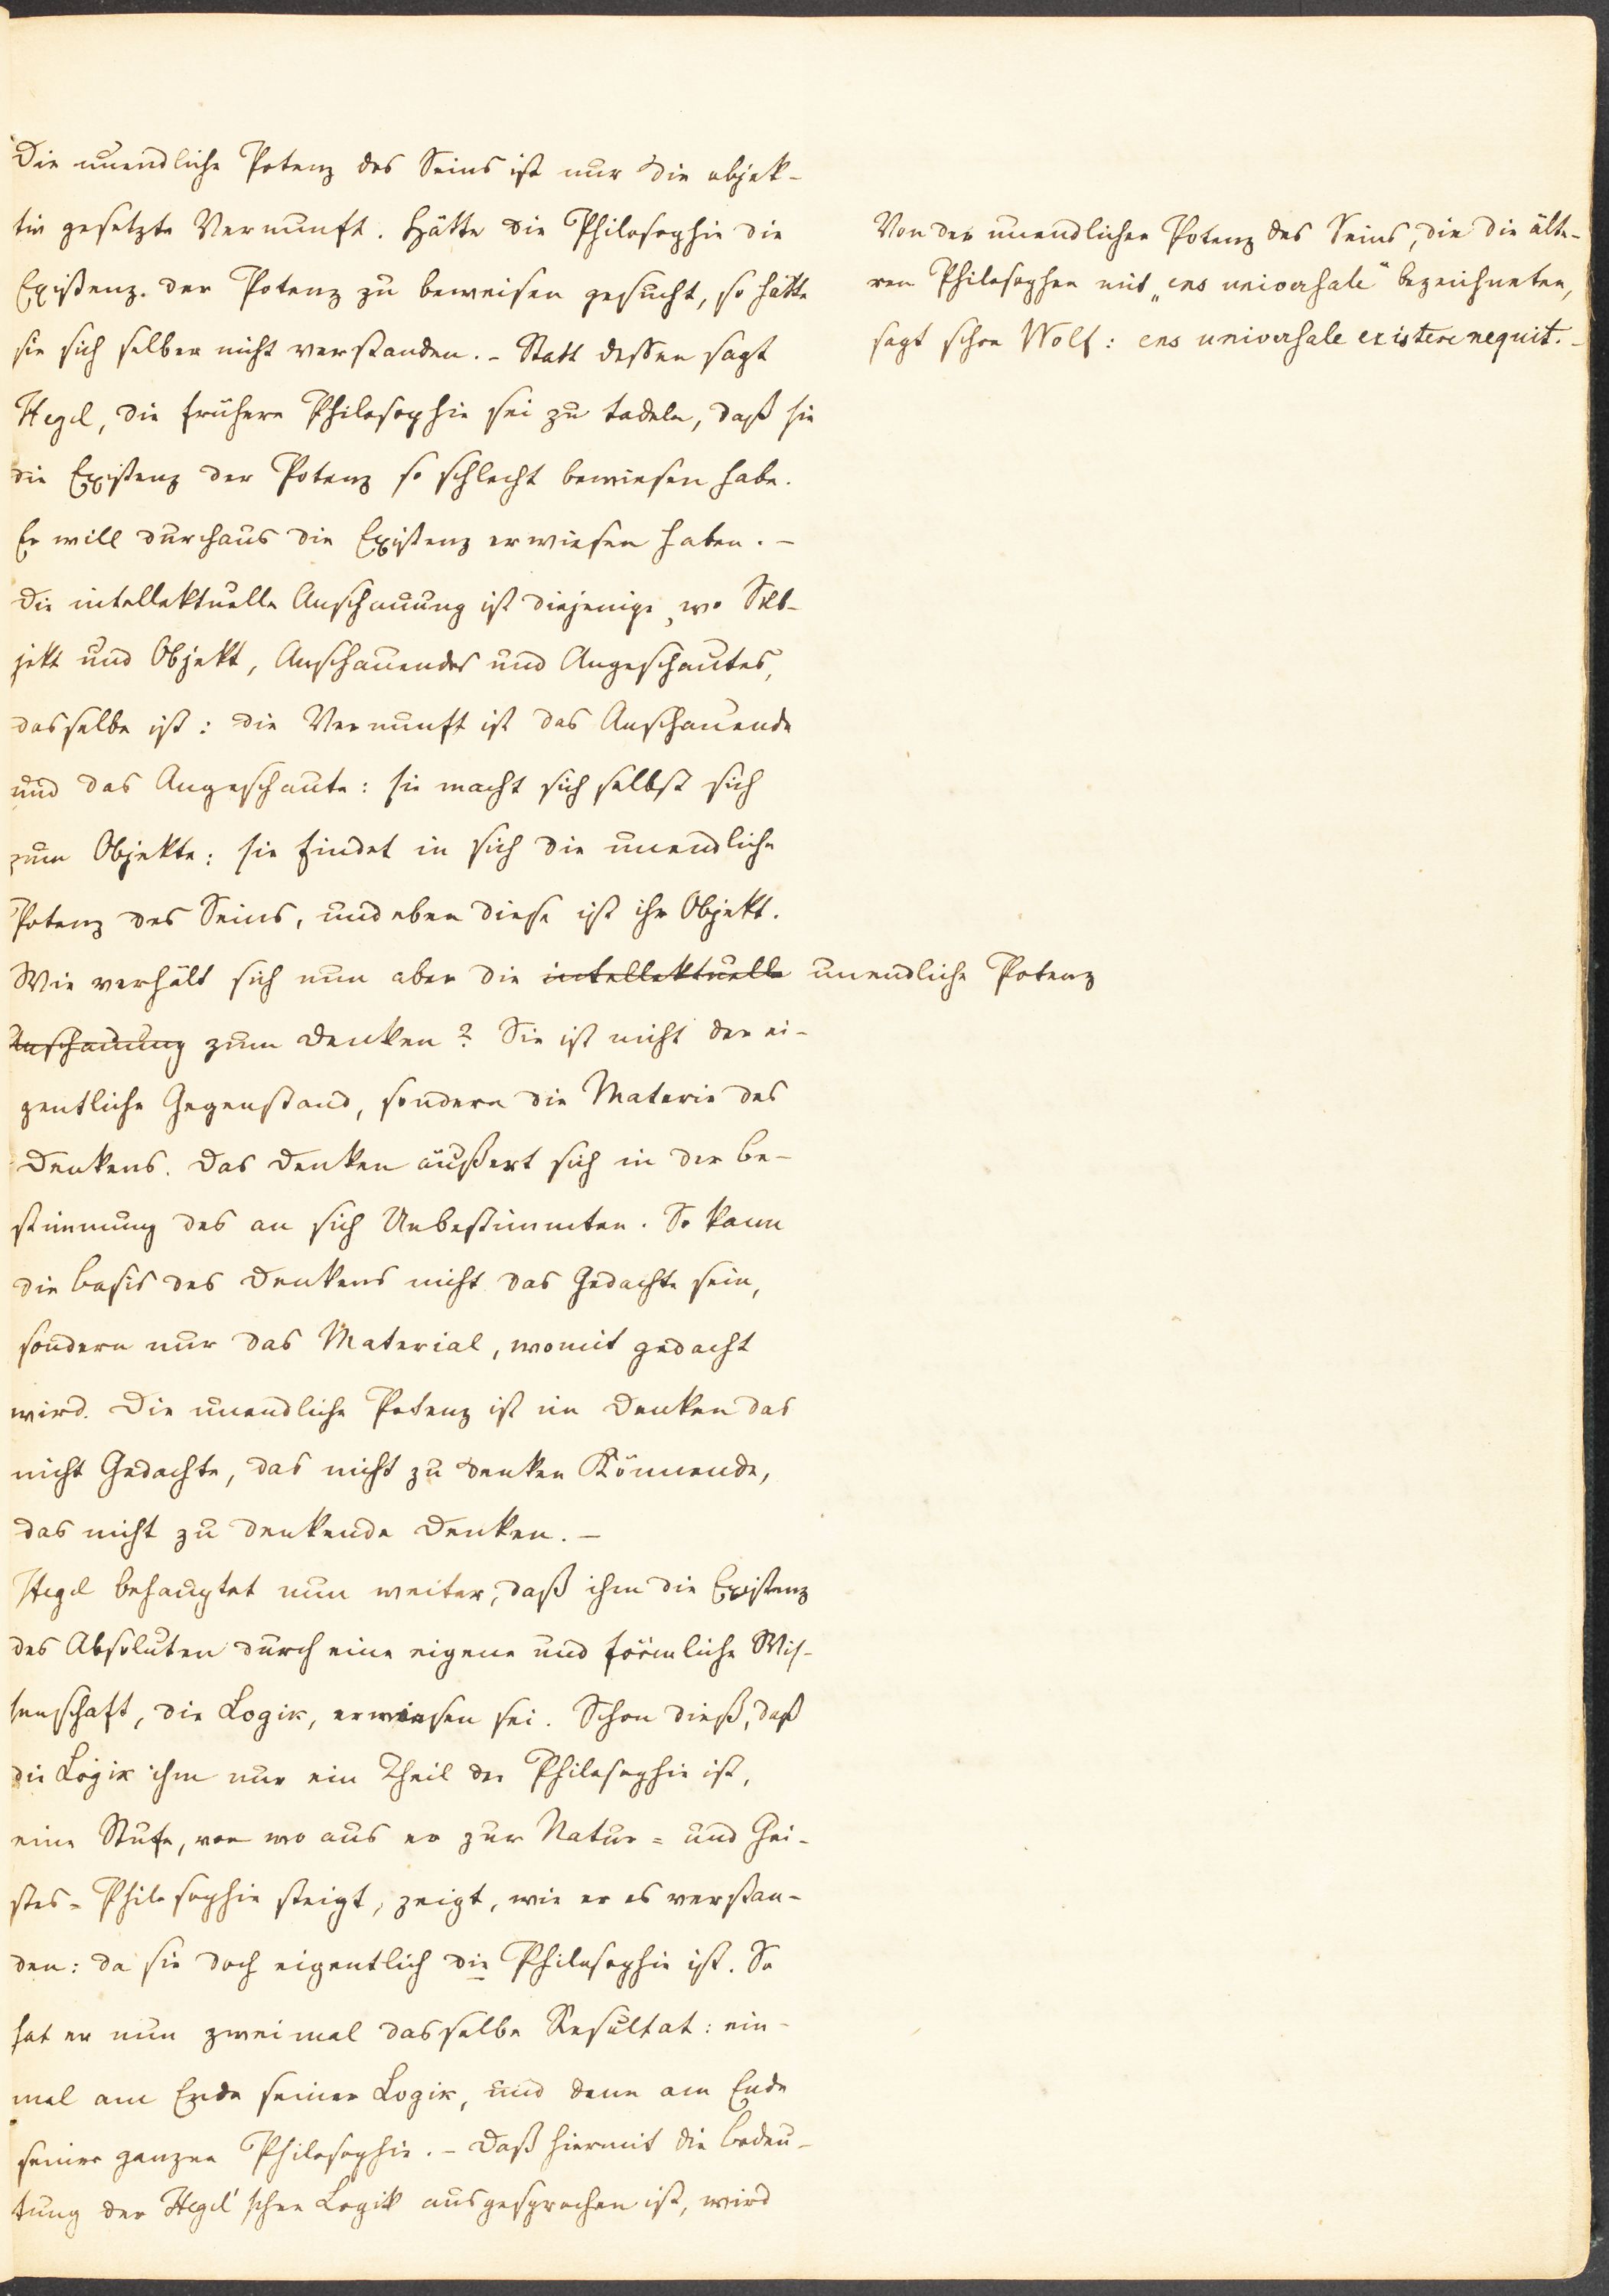 Die unendliche Potenz des Seins ist nur die objek-
tiv gesetzte Vernunft. Hätte die Philosophie die
Existenz der Potenz zu beweisen gesucht, so hätte
sie sich selber nicht verstanden. – Statt dessen sagt
Hegel, die frühere Philosophie sei zu tadeln, daß sie
die Existenz der Potenz so schlecht bewiesen habe.
Er will durchaus die Existenz erwiesen haben. –
Die intellektuelle Anschauung ist diejenige, wo Sub-
jekt und Objekt, Anschauendes und Angeschautes,
dasselbe ist: die Vernunft ist das Anschauende
und das Angeschaute: sie macht sich selbst sich
zum Objekte: sie findet in sich die unendliche
Potenz des Seins, und eben diese ist ihr Objekt.
Wie verhält sich nun aber die intellektuelle unendliche Potenz
Anschauung zum Denken? Sie ist nicht der ei-
gentliche Gegenstand, sondern die Materie des
Denkens. Das Denken äußert sich in der Be-
stimmung des an sich Unbestimmten. So kann
die Basis des Denkens nicht das Gedachte sein,
sondern nur das Material, womit gedacht
wird. Die unendliche Potenz ist im Denken das
nicht Gedachte, das nicht zu denken Könnende,
das nicht zu denkende Denken. –
Hegel behauptet nun weiter, daß ihm die Existenz
des Absoluten durch eine eigene und förmliche Wis-
senschaft, die Logik, erwiesen sei. Schon dieß, daß
die Logik ihm nur ein Theil der Philosophie ist,
eine Stufe, von wo aus er zur Natur- und Gei-
stes-Philosophie steigt, zeigt, wie er es verstan-
den: da sie doch eigentlich die Philosophie ist. So
hat er nun zweimal dasselbe Resultat: ein-
mal am Ende seiner Logik, und dann am Ende
seiner ganzen Philosophie. – Daß hiermit die Bedeu-
tung der Hegel'schen Logik ausgesprochen ist, wird
Von der unendlichen Potenz des Seins, die die älte-
ren Philosophen mit „ens universale“ bezeichneten,
sagt schon Wolf: ens universale existere nequit. –